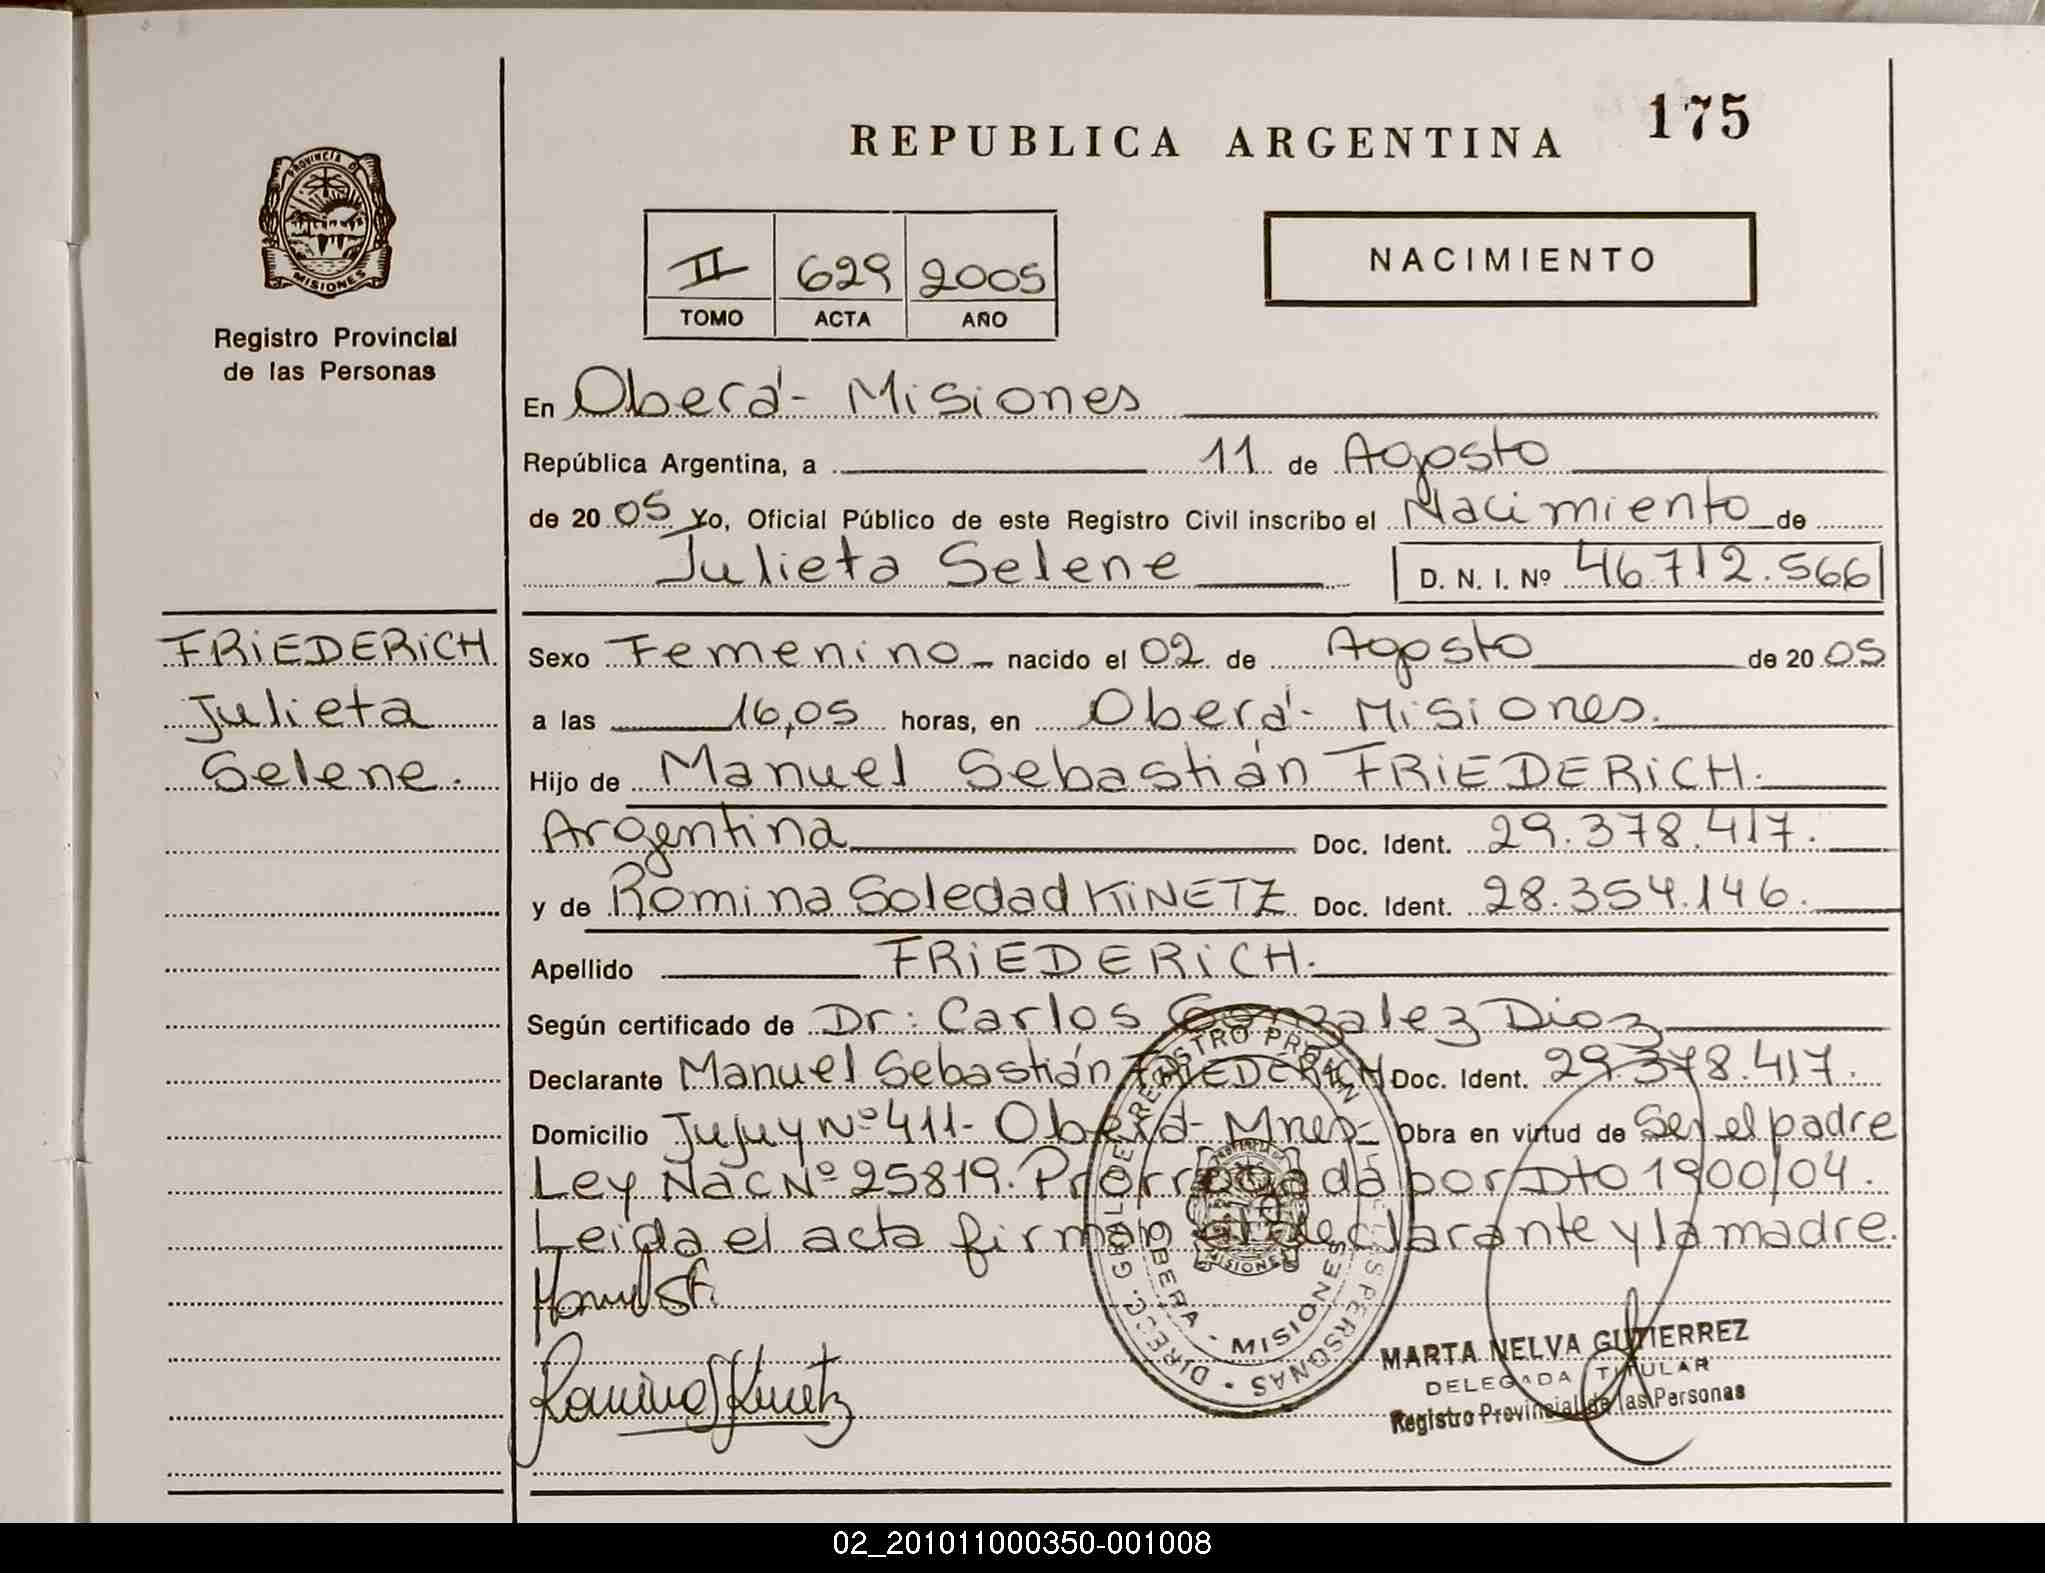 REPUBLICA ARGENTINA
175
PROVINCIA D
MISIONES
Registro Provincial
de las Personas
II 629 2005
TOMO ACTA AÑO
NACIMIENTO
En Oberá - Misiones
República Argentina, a 11 de Agosto
de 20 05 Yo, Oficial Público de este Registro Civil inscribo el Nacimiento de
Julieta Selene D. N. I. Nº 46.712.566
FRIEDERICH
Julieta
Selene.
Sexo Femenino nacido el 02 de Agosto de 20 05
a las 16,05 horas, en Oberá - Misiones.
Hijo de Manuel Sebastián FRIEDERICH.
Argentina Doc. Ident. 29.378.417.
y de Romina Soledad KINETZ Doc. Ident. 28.354.146.
Apellido FRIEDERICH.
Según certificado de Dr: Carlos Gonzalez Dioz
Declarante Manuel Sebastián FRIEDERICH Doc. Ident. 29.378.417.
Domicilio Jujuy Nº 411 - Oberá - Mnes - Obra en virtud de Ser el padre
Ley Nac Nº 25819. Prorrogada por Dto 1900/04.
Leida el acta firman el declarante y la madre.
Romina S Kinetz
DIRECC. GRAL. DE REGISTRO PROVIN. DE LAS PERSONAS
OBERA - MISIONES
MISIONES
MARTA NELVA GUTIERREZ
DELEGADA TITULAR
Registro Provincial de las Personas
02_201011000350-001008